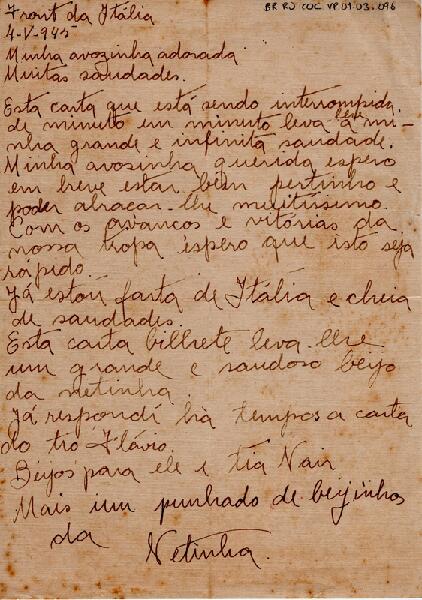 Front da Itália
BR RJ COC VP.01.03.096
4-V-945
Minha avozinha adorada
Muitas saudades.
Esta carta que está sendo interrompida
de minuto em minuto leva lhe a mi-
nha grande e infinita saudade.
Minha avosinha querida espero
em breve estar bem pertinho e
poder abraçar-lhe muitissimo.
Com os avanços e vitórias da
nossa tropa espero que isto seja
rapido.
Já estou farta de Itália e cheia
de saudades.
Esta carta bilhete leva-lhe
um grande e saudoso beijo
da netinha.
Já respondi ha tempos a carta
do tio Flávio.
Beijos para ele e tia Nair
Mais um punhado de beijinhos
da Netinha.